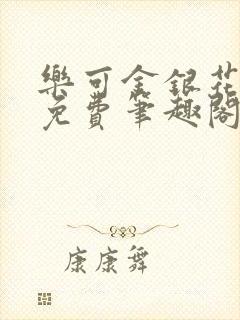 樂可金銀花
免費筆趣閣
康康舞